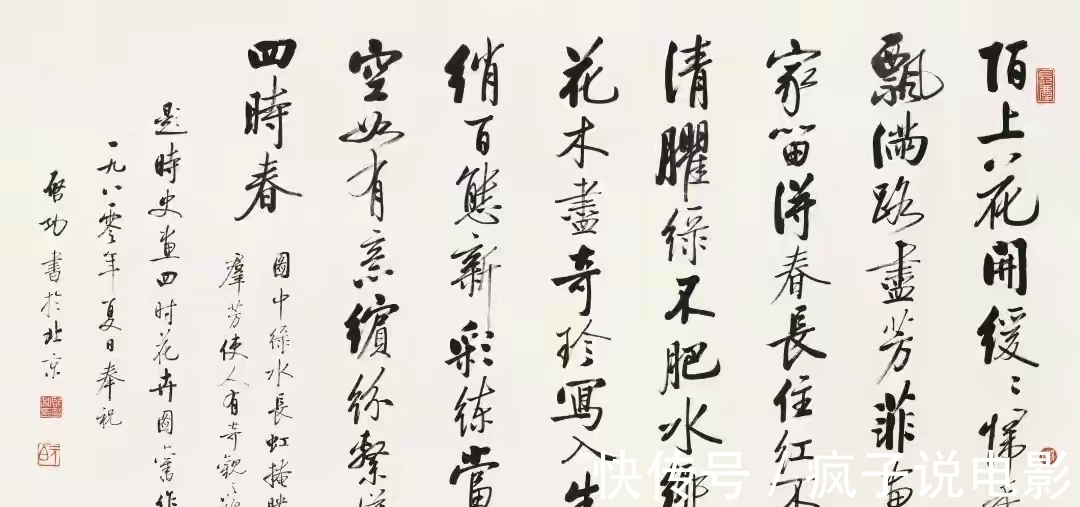 陌上花開緩〻
飄滿路盡芳菲
家留得春長住紅不
清臞綠不肥水
花木盡奇珍寫入生
綃百態新彩練當
空如有意繽紛繫
四時春
圖中綠水長虹掩映
群芳使人有奇觀之
題時史畫四時花卉圖舊作
一九八零年夏日奉祝
啓功書於北京
快传号 / 疯子说电影